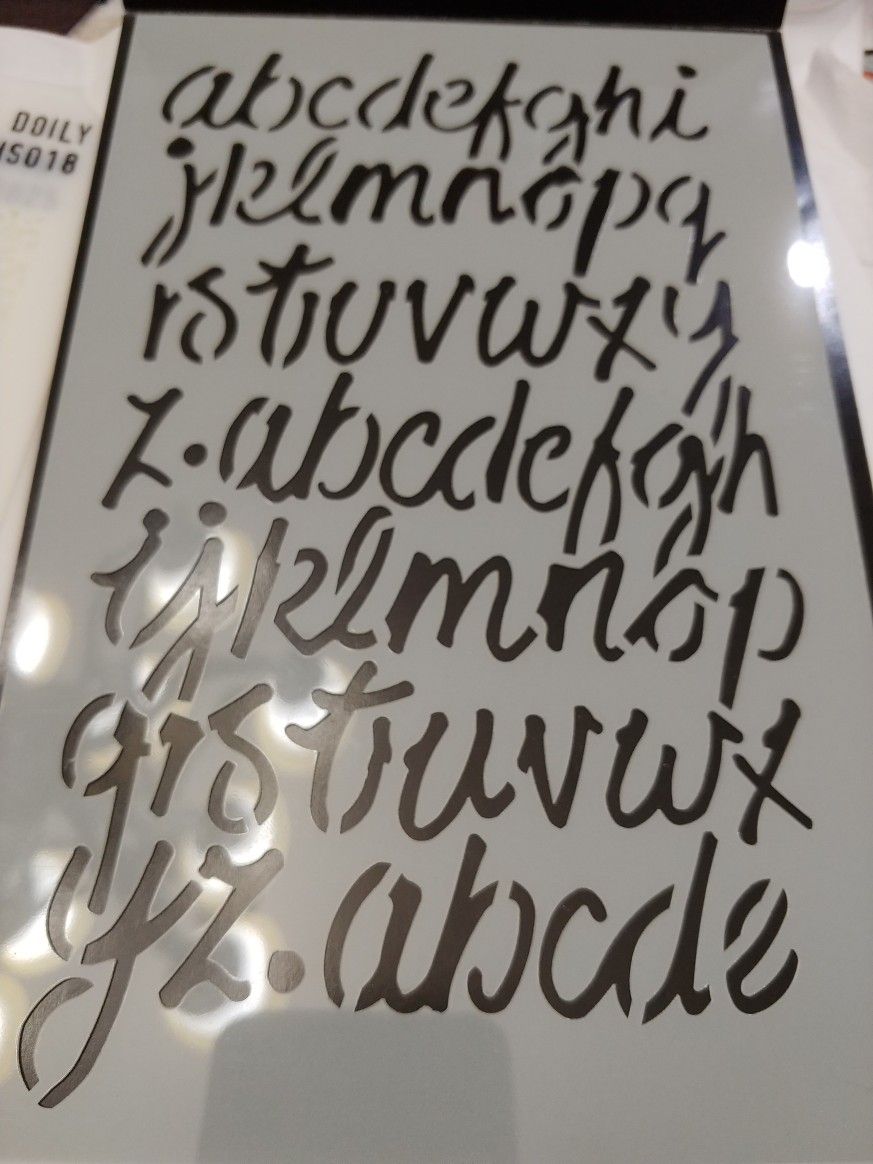 DOILY
abcdefghi
jklmnopq
rstuvwxy
z.abcdefgh
ijklmnop
qrstuvwx
yz.abcde